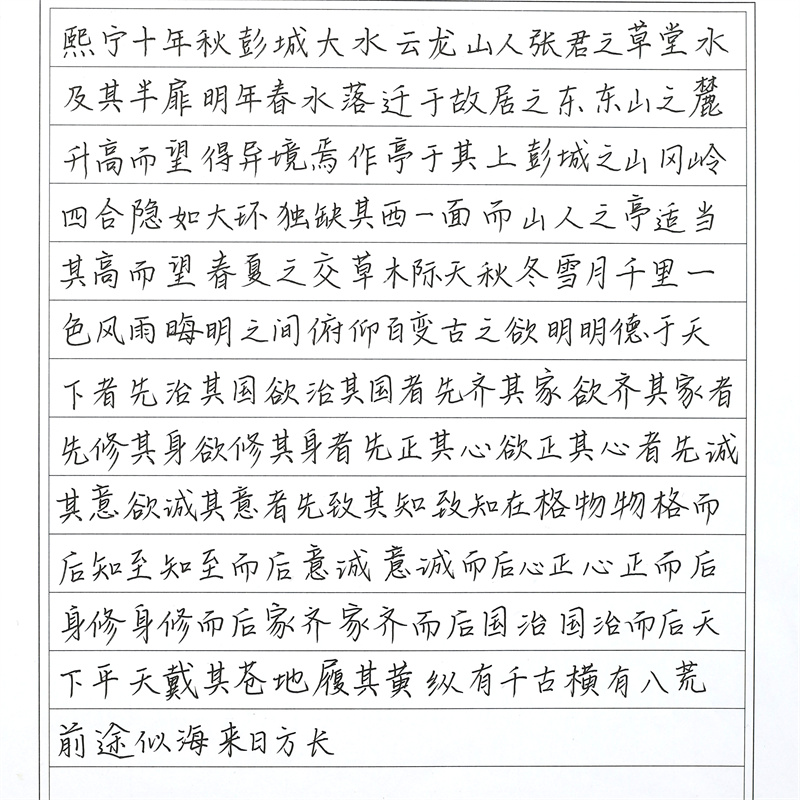 熙宁十年秋彭城大水云龙山人张君之草堂水
及其半扉明年春水落迁于故居之东东山之麓
升高而望得异境焉作亭于其上彭城之山冈岭
四合隐如大环独缺其西一面而山人之亭适当
其高而望春夏之交草木际天秋冬雪月千里一
色风雨晦明之间俯仰百变古之欲明明德于天
下者先治其国欲治其国者先齐其家欲齐其家者
先修其身欲修其身者先正其心欲正其心者先诚
其意欲诚其意者先致其知致知在格物物格而
后知至知至而后意诚意诚而后心正心正而后
身修身修而后家齐家齐而后国治国治而后天
下平天戴其苍地履其黄纵有千古横有八荒
前途似海来日方长